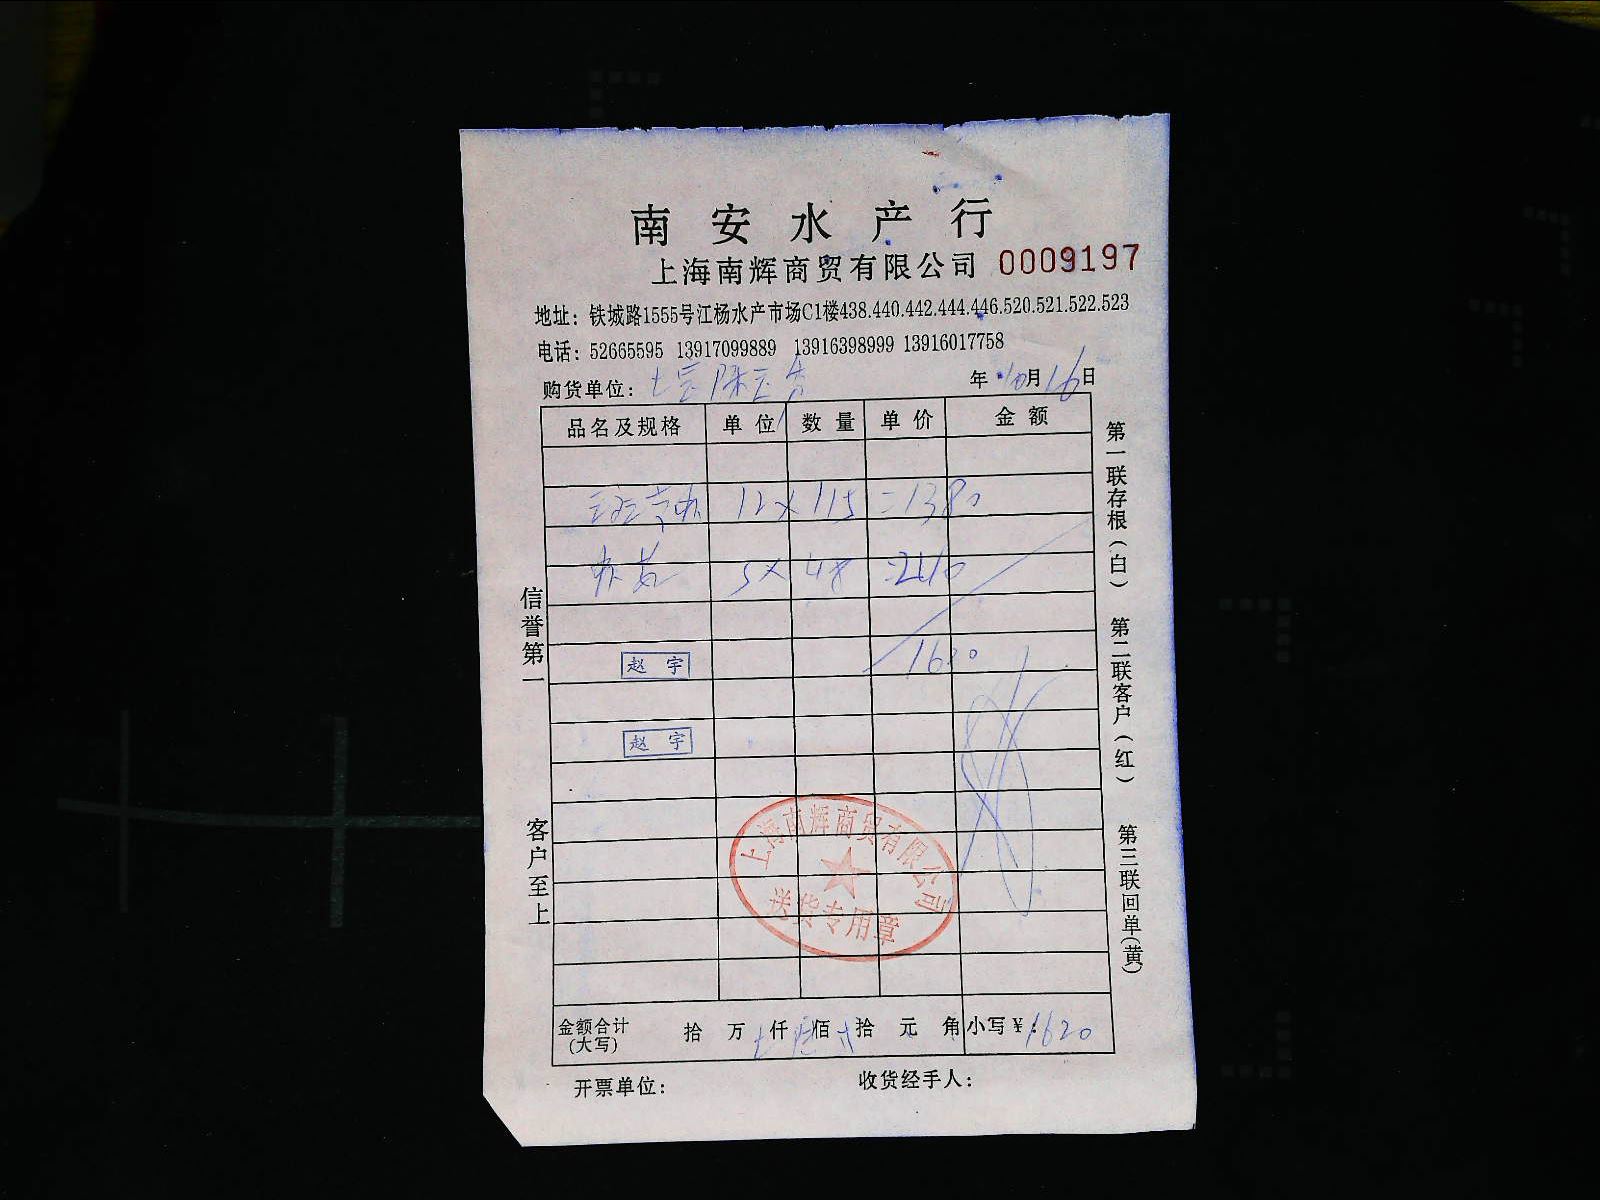 南安水产行
上海南辉商贸有限公司 0009197
地址：铁城路1555号江杨水产市场C1楼438.440.442.444.446.520.521.522.523
电话：52665595 13917099889 13916398999 13916017758
购货单位：
年 10月16日
品名及规格 单位 数量 单价 金额
12 × 115 =1380
5 × 48 =240
1620
赵宇
赵宇
上海南辉商贸有限公司
送货专用章
金额合计(大写) 拾 万 仟 佰 拾 元 角 小写¥：1620
开票单位： 收货经手人：
信誉第一
客户至上
第一联存根(白)
第二联客户(红)
第三联回单(黄)